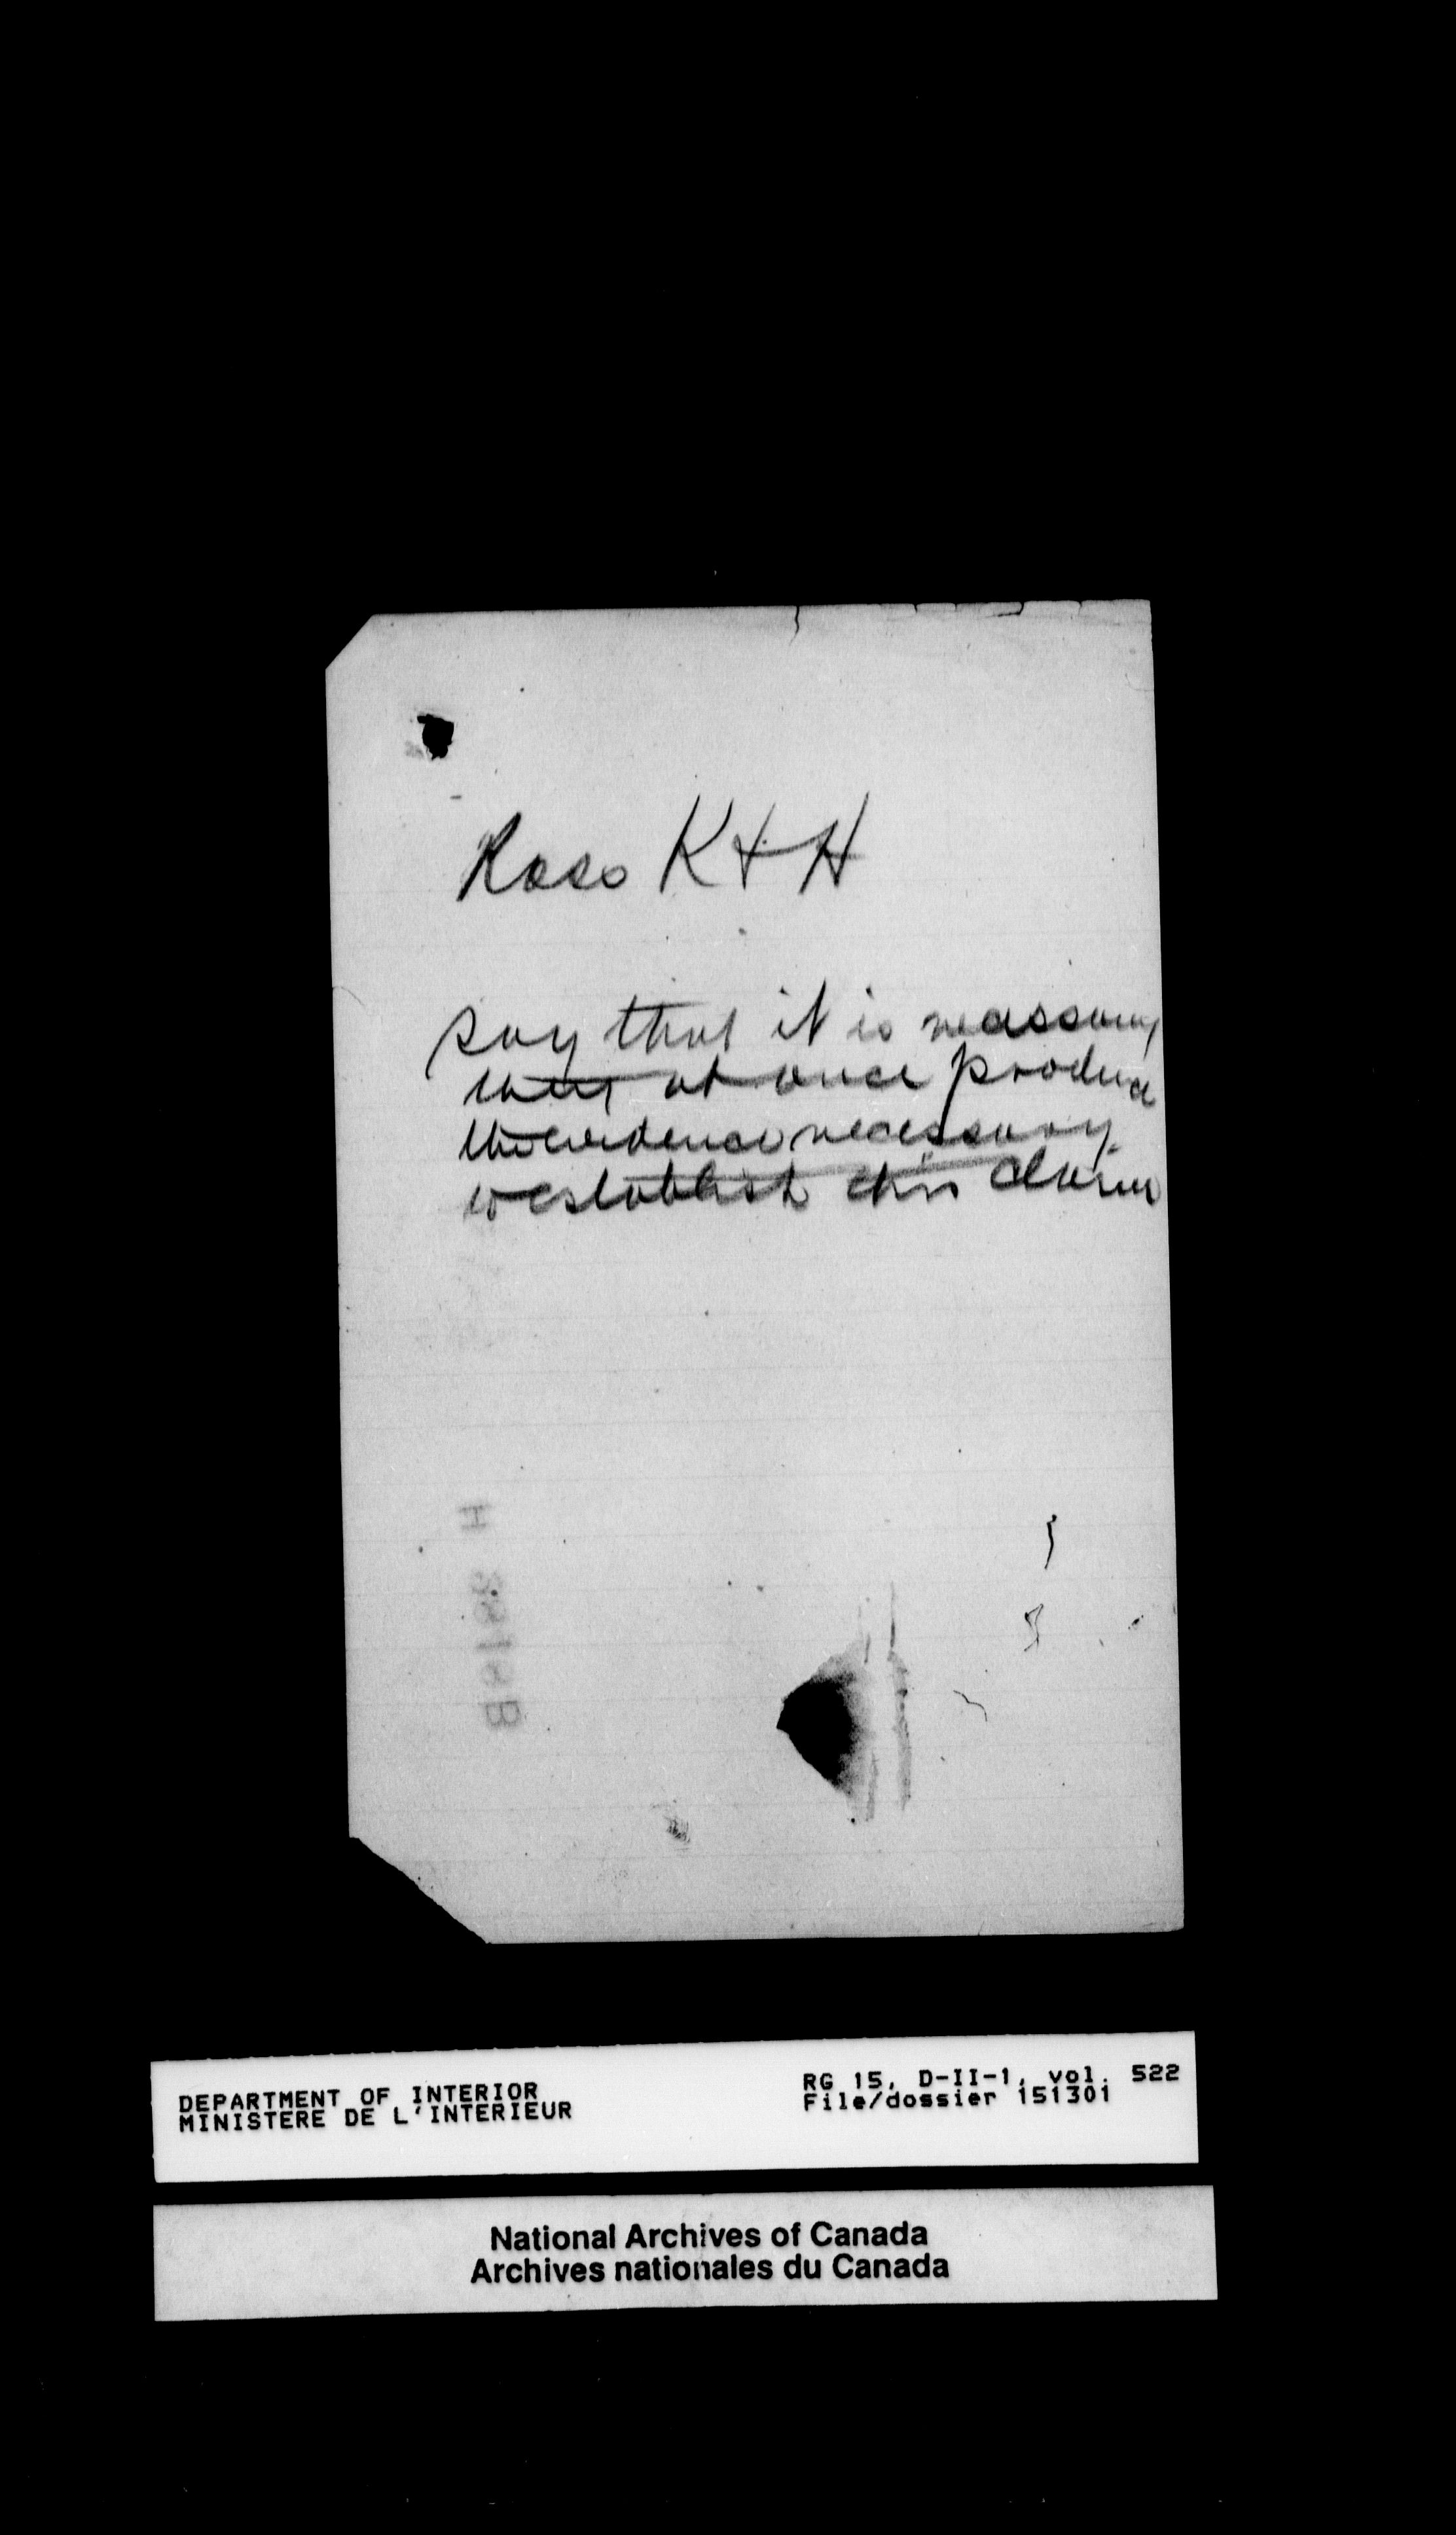 Ross K & H
say that it is necessary
they at once produce
the evidence necessary
to establish this claim
DEPARTMENT OF INTERIOR
MINISTERE DE L'INTERIEUR
RG 15, D-II-1, vol. 522
File/dossier 151301
National Archives of Canada
Archives nationales du Canada